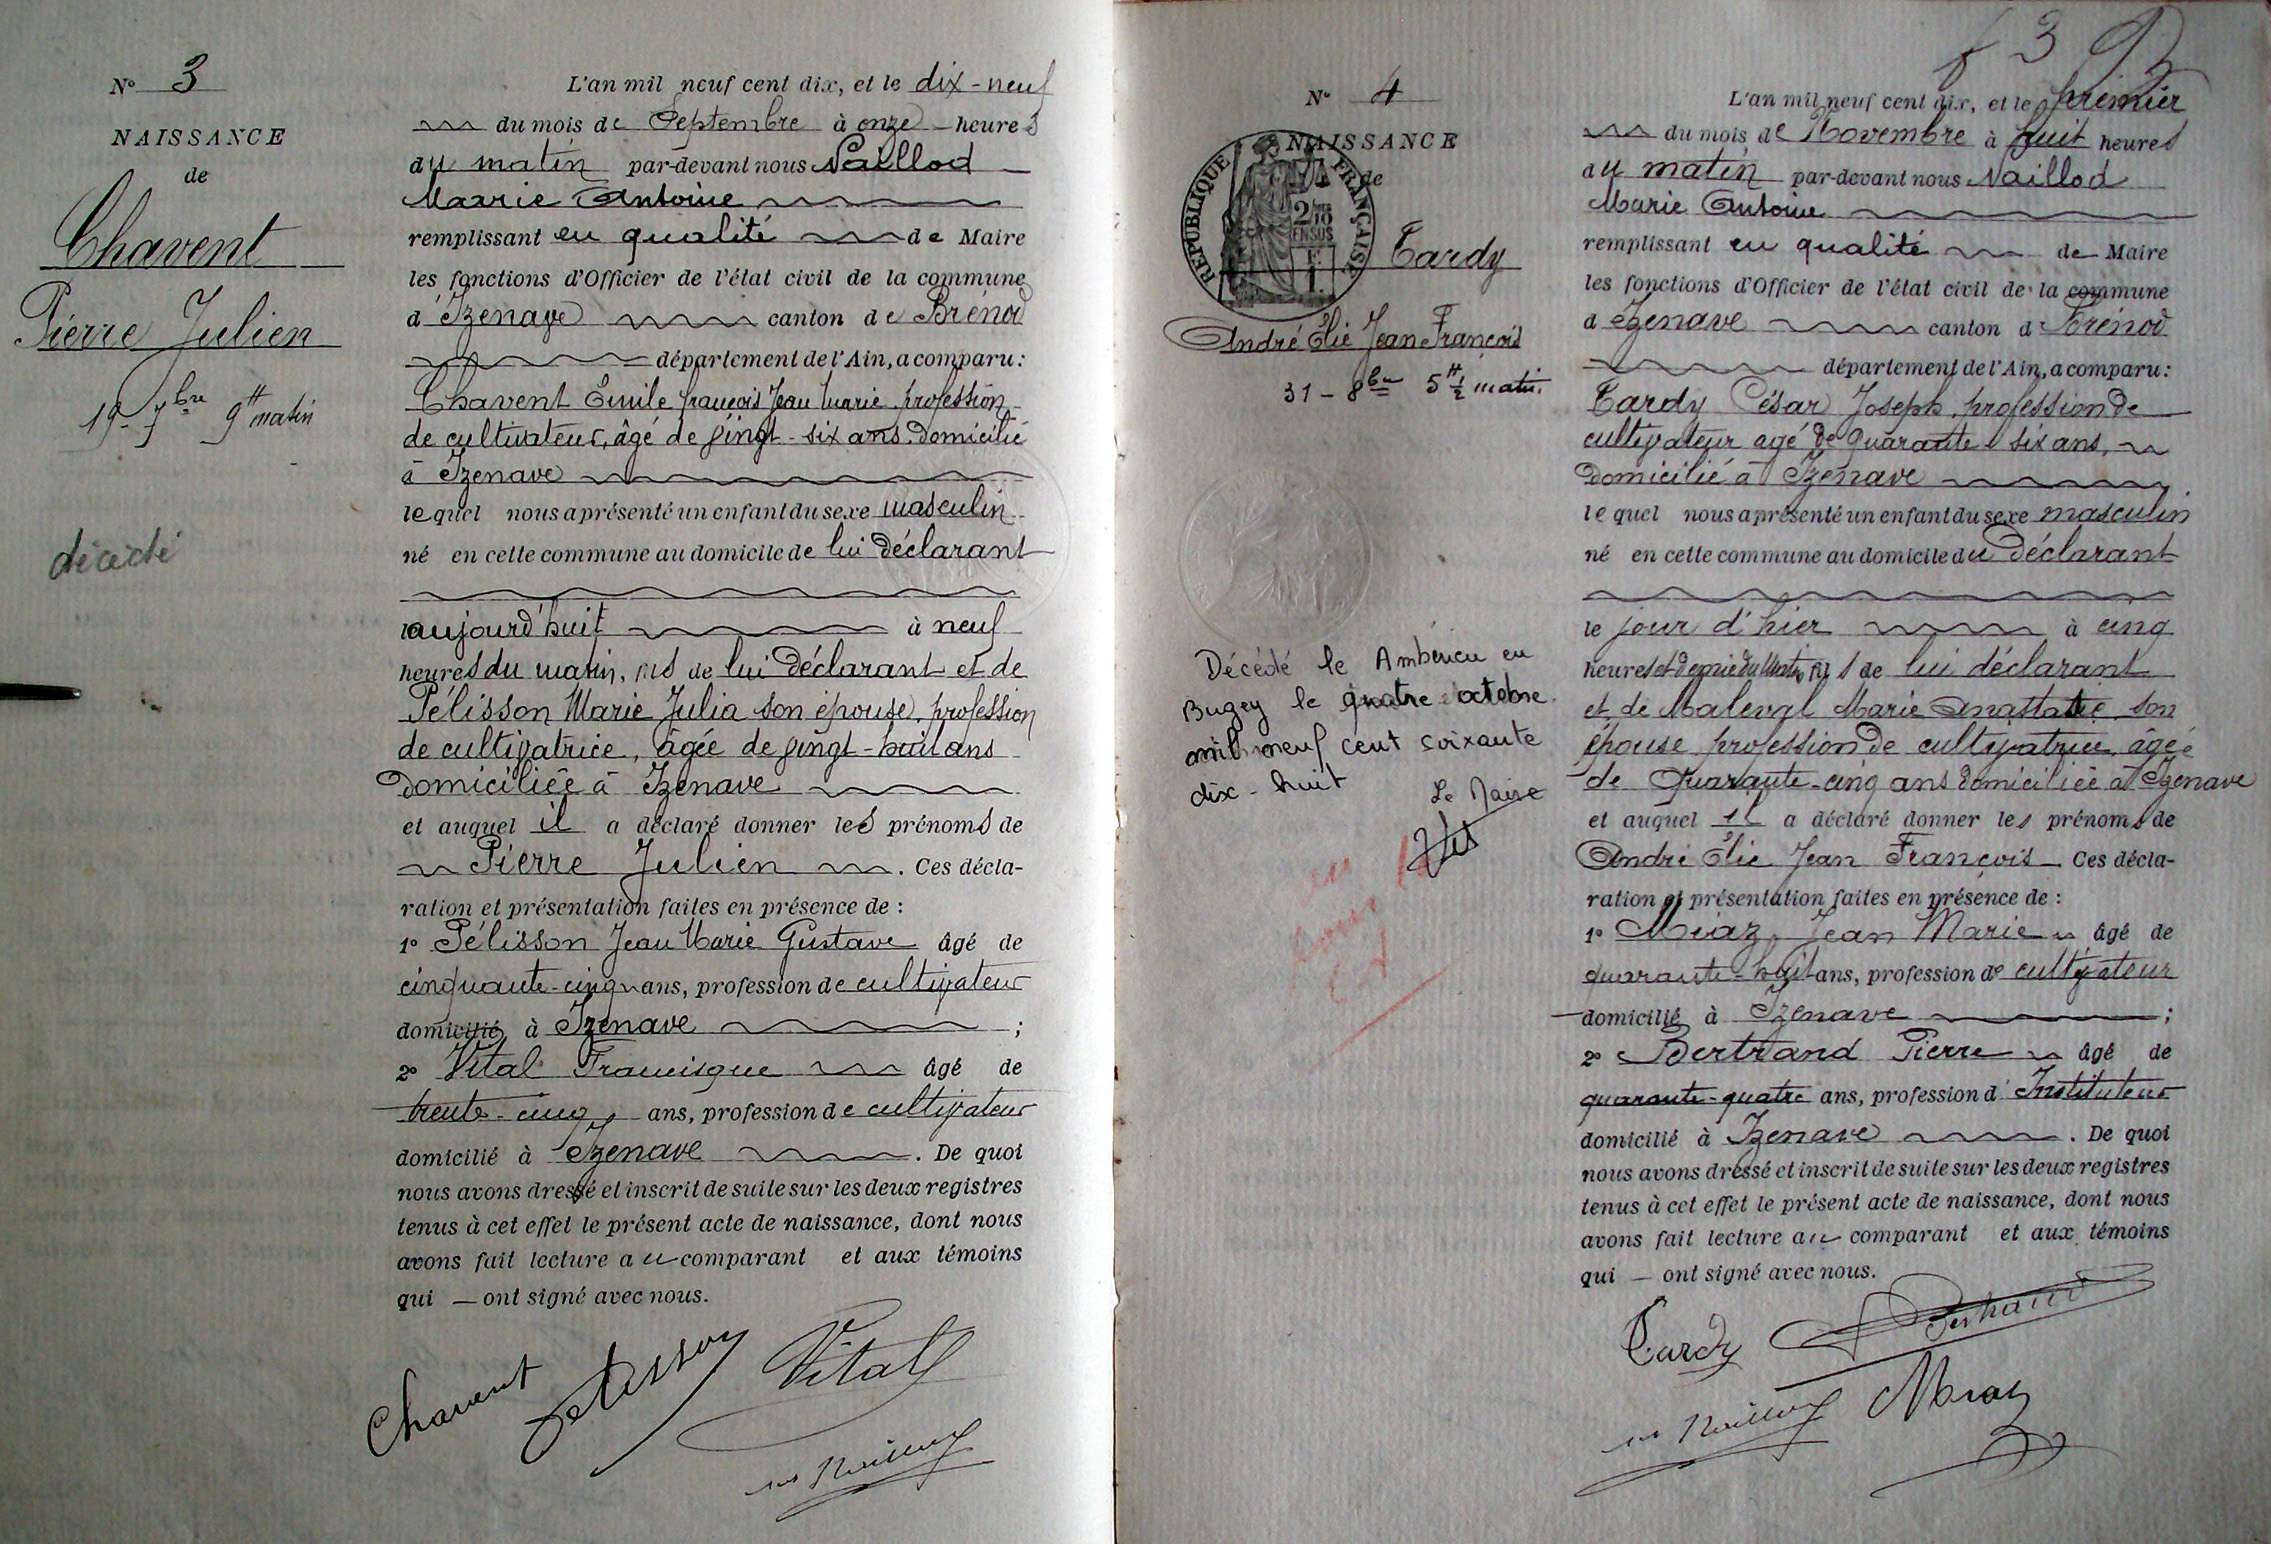 N° 3
NAISSANCE
de
Chavent
Pierre Julien
19 - 7bre 9H matin
décédé
L'an mil neuf cent dix, et le dix-neuf
du mois de Septembre à onze heures
du matin par-devant nous Naillod
Marie Antoine
remplissant en qualité de Maire
les fonctions d'Officier de l'état civil de la commune
d'Izenave canton de Brénod
département de l'Ain, a comparu :
Chavent Emile françois Jean Marie profession
de cultivateur, âgé de vingt-six ans domicilié
à Izenave
lequel nous a présenté un enfant du sexe masculin
né en cette commune au domicile de lui déclarant
aujourd'huit à neuf
heures du matin, fils de lui déclarant et de
Pélisson Marie Julia son épouse, profession
de cultivatrice, âgée de vingt-huit ans
domiciliée à Izenave
et auquel il a déclaré donner les prénoms de
Pierre Julien . Ces décla-
ration et présentation faites en présence de :
1° Pélisson Jean Marie Gustave âgé de
cinquante-cinq ans, profession de cultivateur
domicilié à Izenave ;
2° Vital Francisque âgé de
trente-cinq ans, profession de cultivateur
domicilié à Izenave . De quoi
nous avons dressé et inscrit de suite sur les deux registres
tenus à cet effet le présent acte de naissance, dont nous
avons fait lecture au comparant et aux témoins
qui — ont signé avec nous.
Chavent Pelisson Vital
Naillod
f 39
N° 4
NAISSANCE
de
RÉPUBLIQUE FRANÇAISE
Tardy
André Elie Jean François
31 - 8bre 5H ½ matin
Décédé le Ambérieu en
Bugey le quatre octobre
mil neuf cent soixante
dix-huit
Le Maire
L'an mil neuf cent dix, et le premier
du mois de Novembre à huit heures
du matin par-devant nous Naillod
Marie Antoine
remplissant en qualité de Maire
les fonctions d'Officier de l'état civil de la commune
d'Izenave canton de Brénod
département de l'Ain, a comparu :
Tardy César Joseph, profession de
cultivateur agé de quarante six ans,
domicilié à Izenave
lequel nous a présenté un enfant du sexe masculin
né en cette commune au domicile du déclarant
le jour d'hier à cinq
heures et demie du matin, fils de lui déclarant
et de Maleval Marie Anastasie son
épouse profession de cultivatrice âgée
de quarante-cinq ans domiciliée à Izenave
et auquel il a déclaré donner les prénoms de
André Elie Jean François Ces décla-
ration et présentation faites en présence de :
1° Miraz Jean Marie âgé de
quarante-huit ans, profession de cultivateur
domicilié à Izenave ;
2° Bertrand Pierre âgé de
quarante-quatre ans, profession d'Instituteur
domicilié à Izenave . De quoi
nous avons dressé et inscrit de suite sur les deux registres
tenus à cet effet le présent acte de naissance, dont nous
avons fait lecture au comparant et aux témoins
qui — ont signé avec nous.
Tardy Bertrand
Naillod Miraz